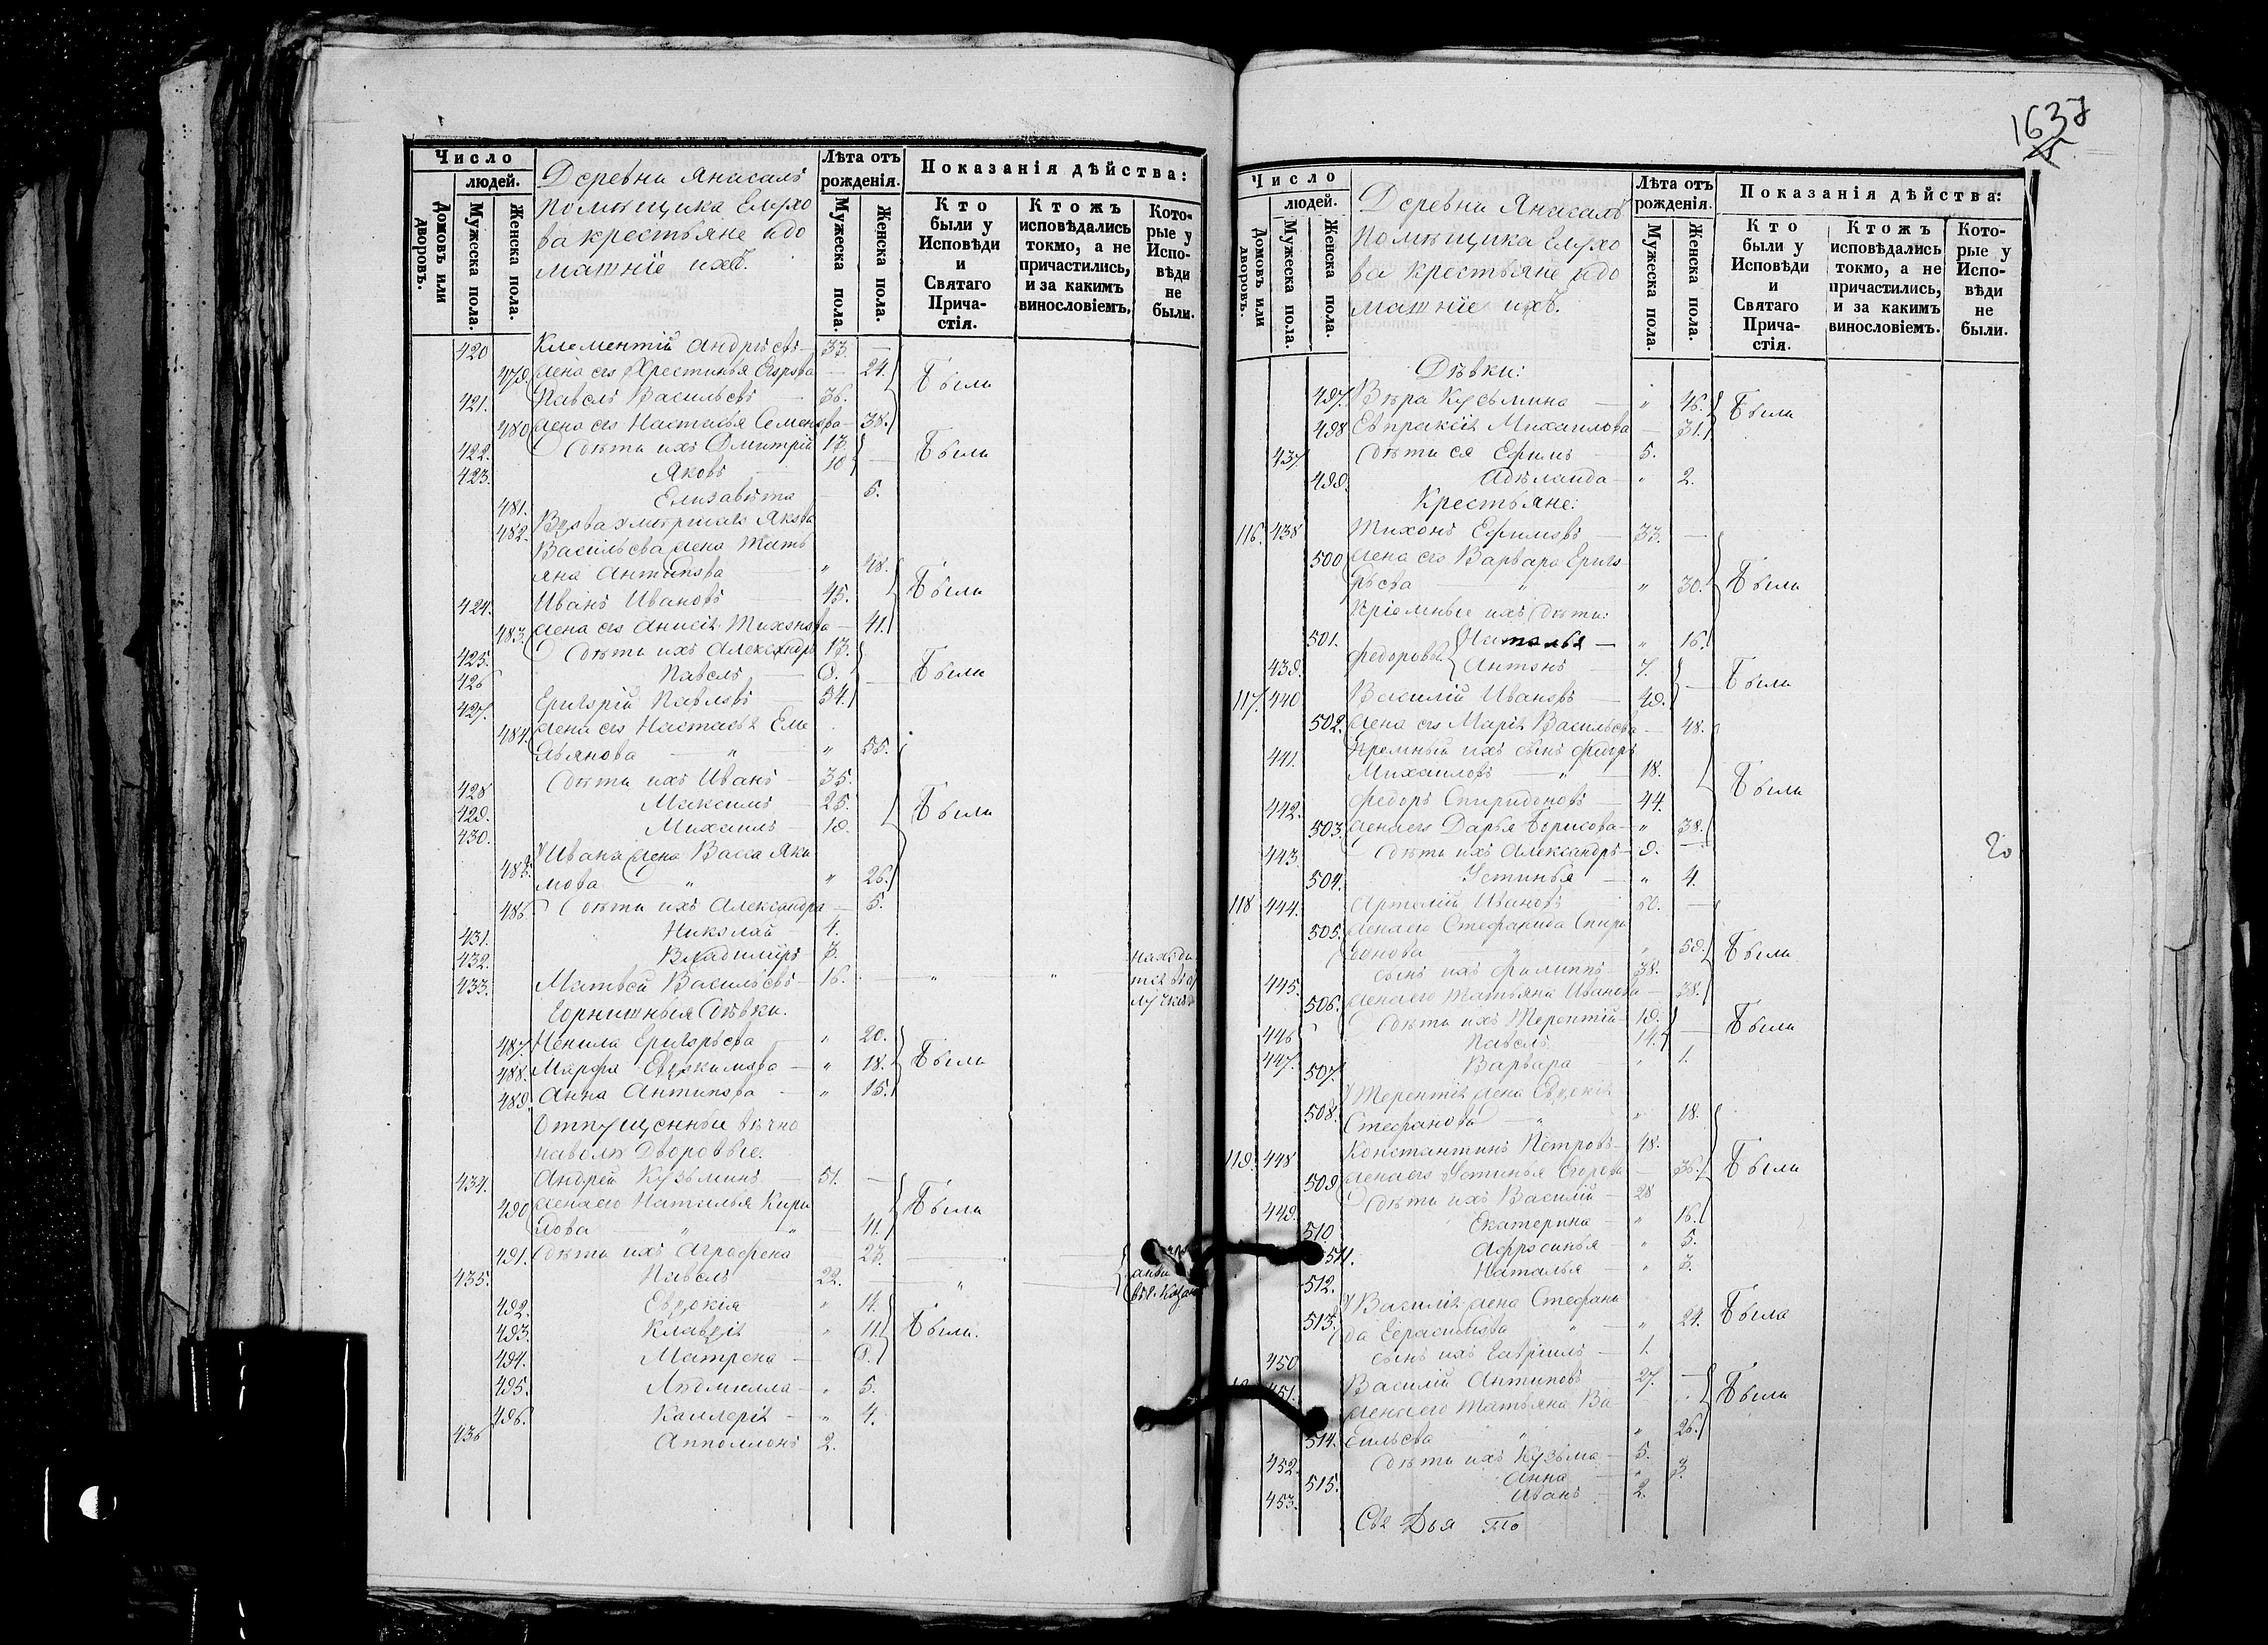 Число
людей.
Домовъ или дворовъ.
Мужеска пола.
Женска пола.
Деревни Янасалъ
помѣщика Елухо
ва крестьяне и до
машніе ихъ.
Лѣта отъ рожденія.
Мужеска пола.
Женска пола.
Показанія дѣйства:
Кто были у Исповѣди и Святаго Прича-стія.
Ктожъ исповѣдались токмо, а не причастились, и за какимъ винословіемъ.
Кото-рые у Испо-вѣди не были.
420 Климентій Андреевъ — 33. —
479. жена его Христинья — 24. Были
421. Павелъ Васильевъ — 36.
480 жена его Настасья Семенова — 38.
422. Дѣти ихъ Дмитрій 17. Были
423. Яковъ 10 —
481. Елизавета 5.
482. Якова
Васильева жена Тать
яна Антипова „ 48.
424. Иванъ Ивановъ 45. Были
483. жена его Анисія Тихонова — 41.
425. Дѣти ихъ Александръ 17.
426 Павелъ — 9. Были
427. Григорій Павловъ 54.
484. жена его Настасья Еме
льянова „ „ 55.
428 Дѣти ихъ Иванъ — 35.
429. Максимъ — 25. Были
430. Михаилъ — 19.
485. Ивана жена Васса Яки
мова „ „ 26.
486. Дѣти ихъ Александра — 5.
431. Николай — 4.
432. Владиміръ 3.
433. Матвей Васильевъ — 16. — „ „ находи
тся въ
Горничныя дѣвки.
487. Ненила Григорьева — „ 20.
488. Марфа Евдокимова — „ 18. Были
489. Анна Антипова — „ 15.
Отпущенныи вѣчно
на волю Дворовые.
434. Андрей Кузьминъ 51. —
490 жена его Наталья Кири
лова „ „ — 41. Были
491. Дѣти ихъ Агрофена — 23.
435. Павелъ 22. „
492. Евдокія „ 14.
493. Клавдія „ 11. Были.
494. Матрена — 9.
495. Людмилла — „ 5.
496. Каллерія — „ 4.
436 Апполлонъ 2.
1637
Число
людей.
Домовъ или дворовъ.
Мужеска пола.
Женска пола.
Деревни Янасалъ
помѣщика Елухо
ва крестьяне и до
машніе ихъ.
Лѣта отъ рожденія.
Мужеска пола.
Женска пола.
Показанія дѣйства:
Кто были у Исповѣди и Святаго Прича-стія.
Ктожъ исповѣдались токмо, а не причастились, и за какимъ винословіемъ.
Кото-рые у Испо-вѣди не были.
Дѣвки:
497. Вѣра Кузьмина — „ 46. Были
498 Евпраксія Михаилова — 31.
437. Дѣти ея Ефимъ — 5.
499. Аделаида — „ 2.
Крестьяне:
116. 438 Тихонъ Ефимовъ — 33. —
500 жена его Варвара Григо
рьева „ „ 30. Были
Пріемные ихъ дѣти:
501. Наталья — „ 16.
439. Федоровы Антонъ — 7. Были
117. 440 Василій Ивановъ — 49.
502. жена его Марія Васильева — 48.
441. Пріемный ихъ сынъ Федоръ
Михаиловъ — „ — 18. Были
442. Федоръ Спиридоновъ — 44.
503. жена его Дарья Борисова — „ 38.
443. Дѣти ихъ Александръ — 9. — 20
504. Устинья — „ 4.
118 444. Артемій Ивановъ 60. —
505. жена его Стефанида Спири
донова „ „ 59. Были
445. сынъ ихъ Филиппъ 38.
506. жена его Татьяна Иванова — 38.
446 Дѣти ихъ Терентій — 19. Были
447. Павелъ 14. —
507. Варвара „ 1.
508. Терентія жена Евдокія
Стефанова — „ „ 18.
119. 448 Константинъ Петровъ — 48.
509. жена его Устинья Егорова — 36. Были
449. Дѣти ихъ Василій — 28
510 Екатерина — „ 16.
511. Афросинья — „ 5.
512. Наталья — „ 3.
513. Василія жена Стефани
да Герасимова „ „ 24. Была
450 сынъ ихъ Гавріилъ — 1.
451. Василій Антиповъ — 27. — Были
жена его Татьяна Ва
514. сильева „ „ 26.
452. Дѣти ихъ Кузьма — 5.
515. Анна „ 3.
453. Иванъ — 2.